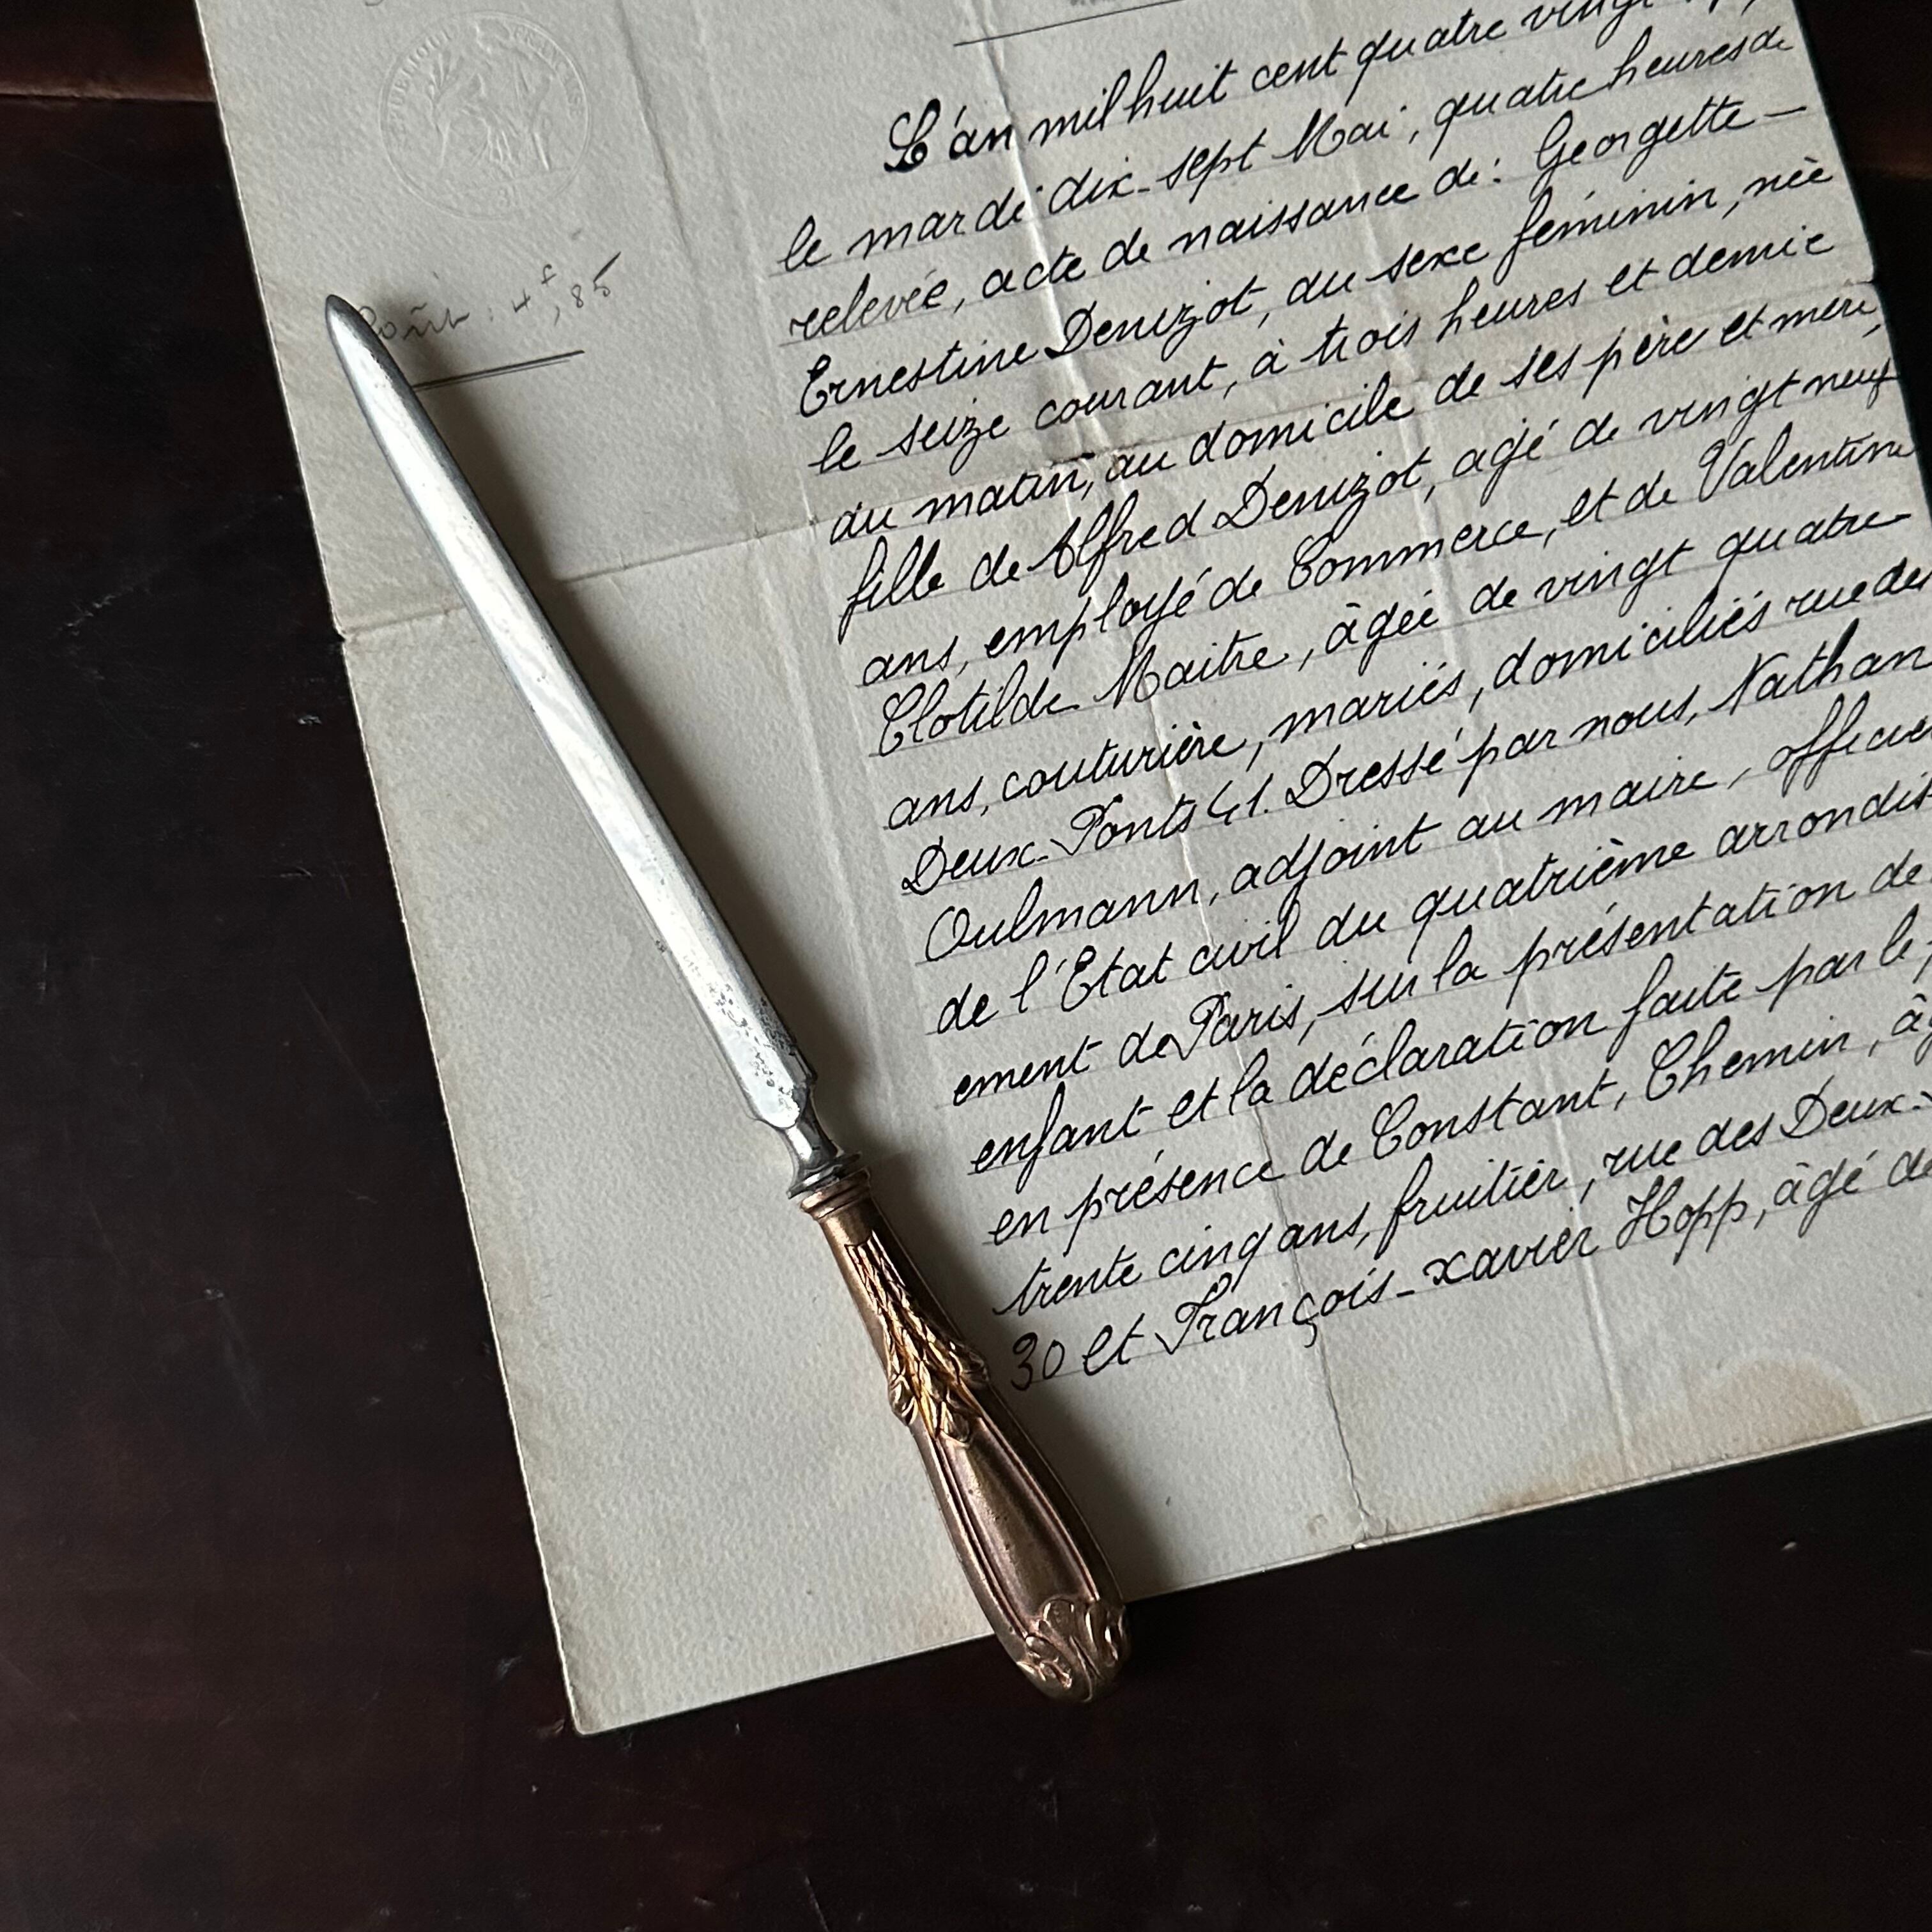 L'an mil huit cent quatre vingt
le mardi dix-sept Mai, quatre heures de
relevée, acte de naissance de: Georgette —
Ernestine Denizot, du sexe féminin, née
le seize courant, à trois heures et demie
du matin, au domicile de ses père et mère,
fille de Alfred Denizot, agé de vingt neuf
ans, employé de Commerce, et de Valentine
Clotilde Maitre, âgée de vingt quatre
ans, couturière, mariés, domiciliés rue des
Deux-Ponts 41. Dressé par nous, Nathan
Oulmann, adjoint au maire, officier
de l'Etat civil du quatrième arrondiss
ement de Paris, sur la présentation de
enfant et la déclaration faite par le
en présence de Constant, Chemin, âg
trente cinq ans, fruitier, rue des Deux-
30 et François-xavier Hopp, âgé de
Coût: 4f,85